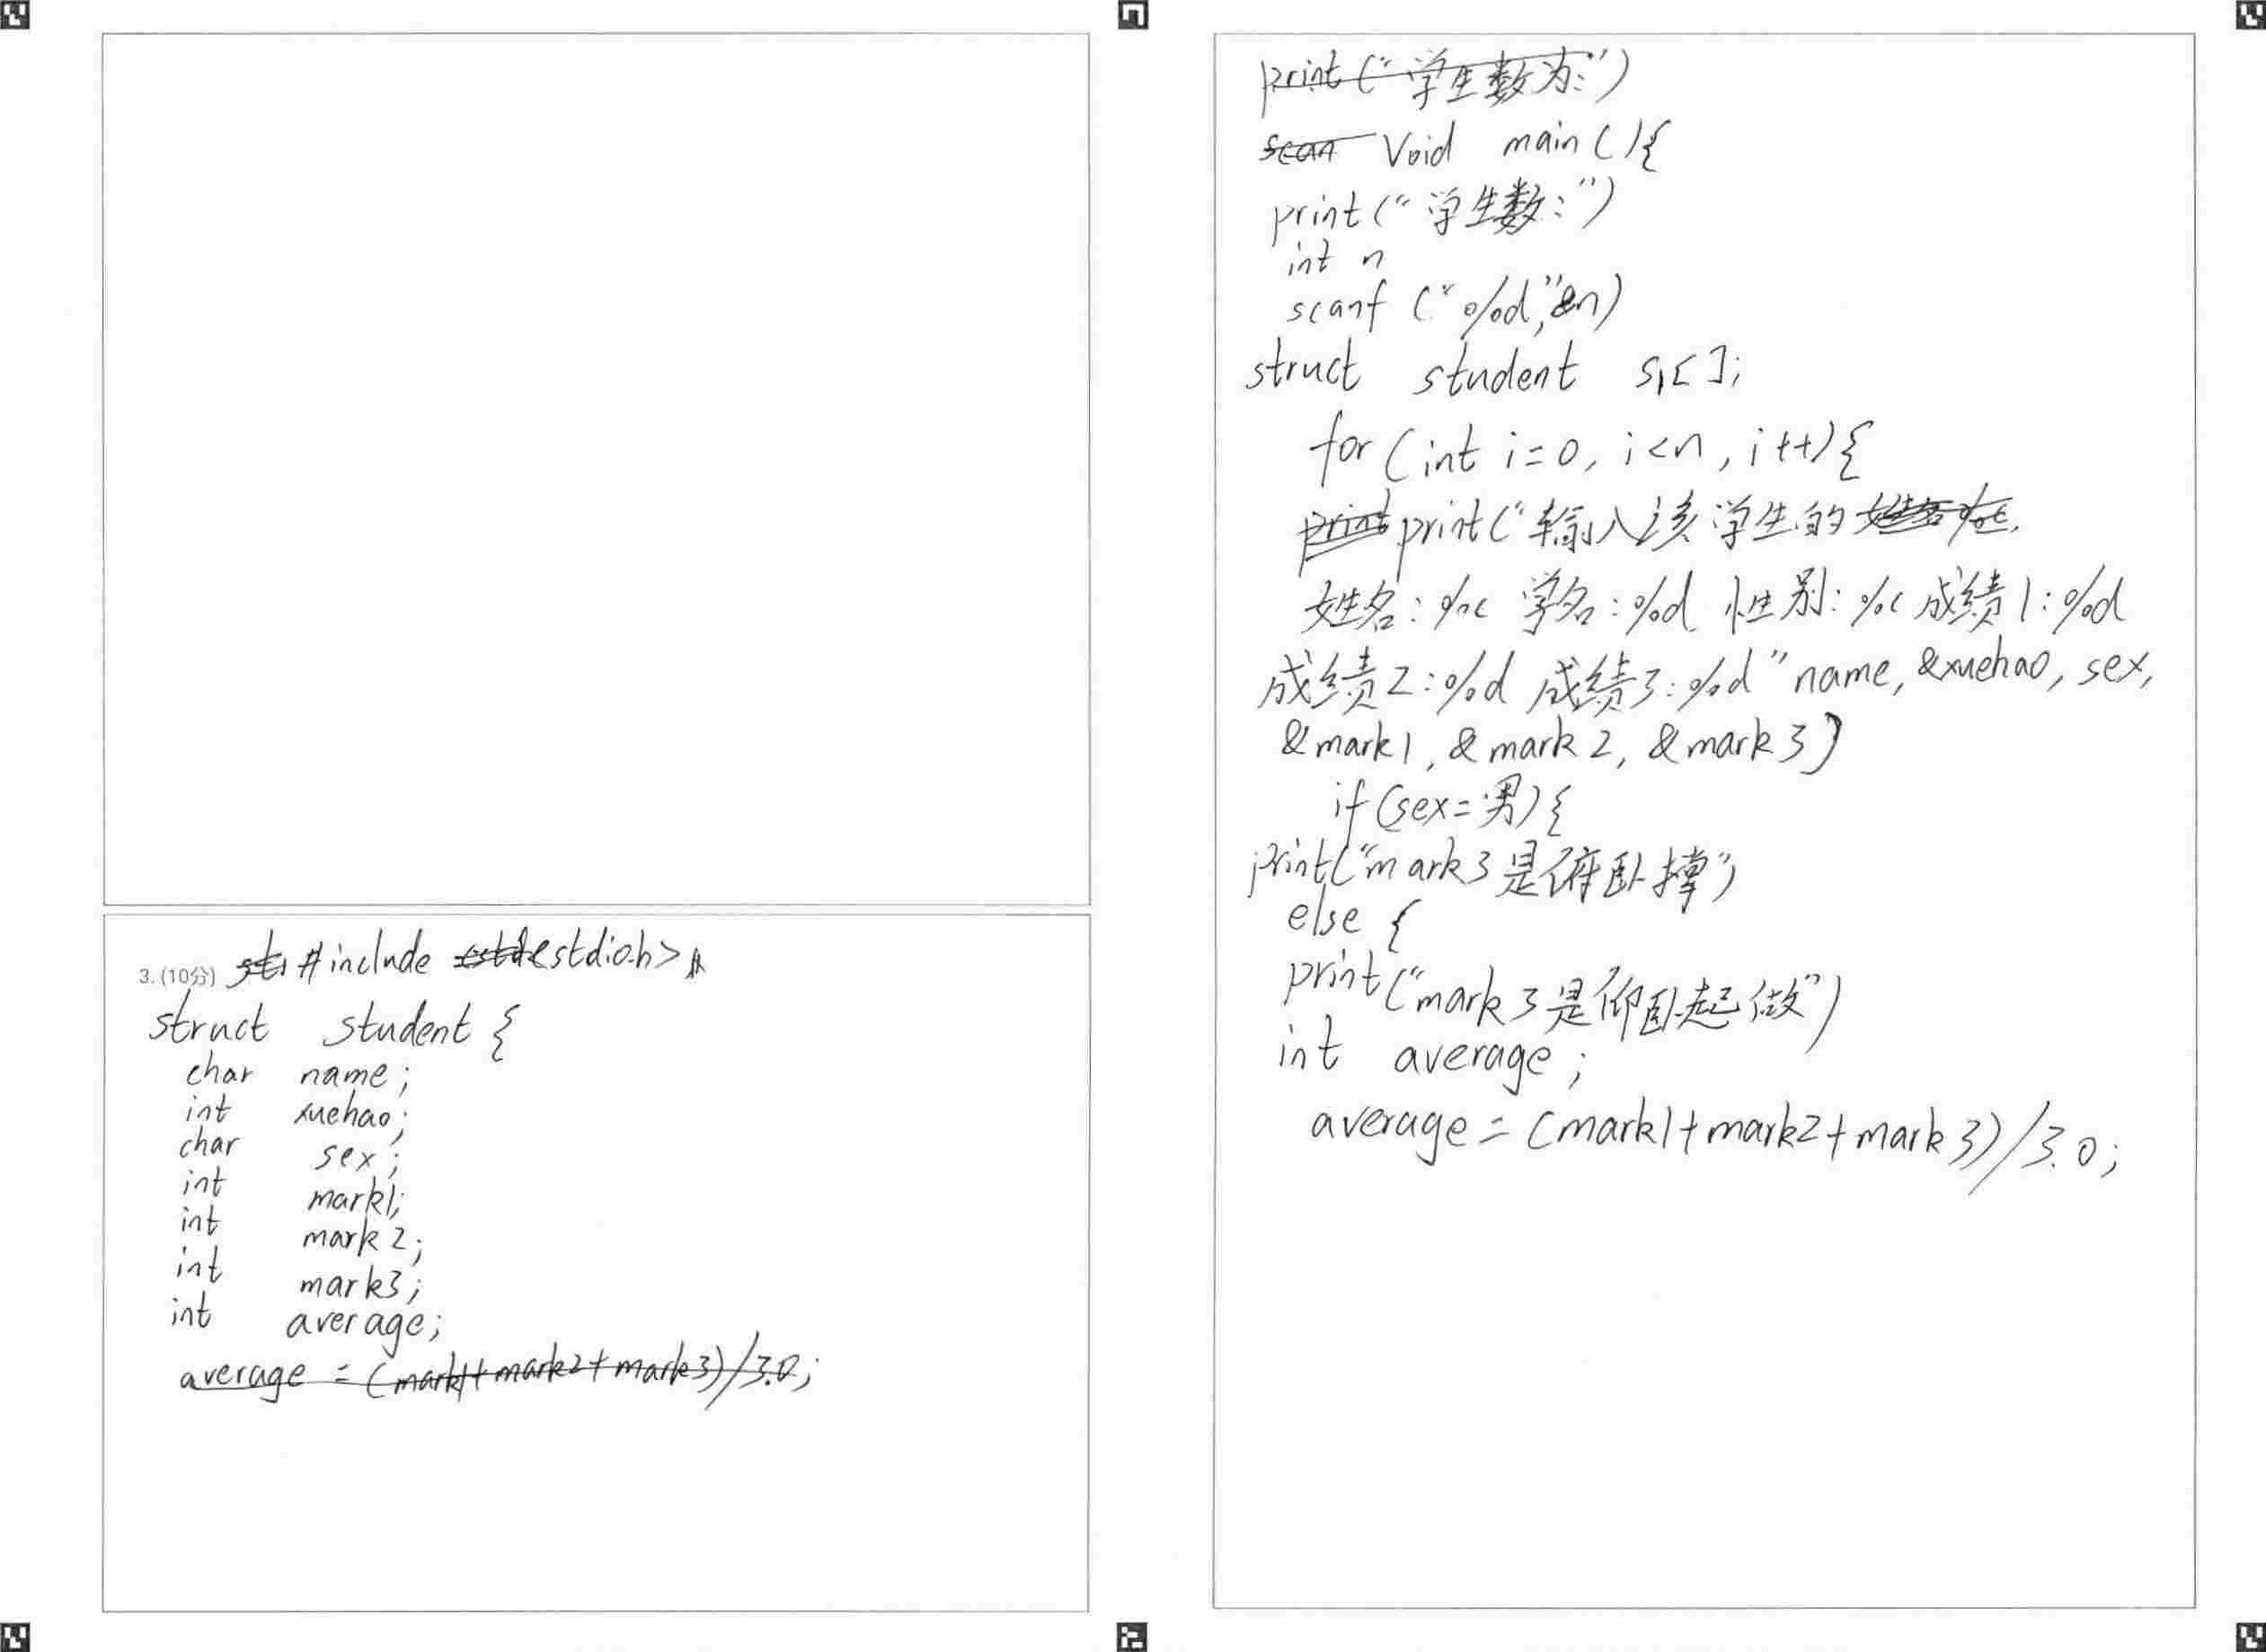 3.(10分) #include <stdio.h>
struct student {
char name;
int xuehao;
char sex;
int mark1;
int mark2;
int mark3;
int average;
average = (mark1+mark2+mark3)/3.0;
print("学生数为:")
scan Void main(){
print("学生数:")
int n
scanf("%d",&n)
struct student s1[];
for(int i=0,i<n,i++){
print print("输入该学生的
姓名:%c 学名:%d 性别:%c 成绩1:%d
成绩2:%d 成绩3:%d"name,&xuehao,sex,
&mark1,&mark2,&mark3)
if(sex=男){
print("mark3是俯卧撑")
else {
print("mark3是仰卧起做")
int average;
average=(mark1+mark2+mark3)/3.0;